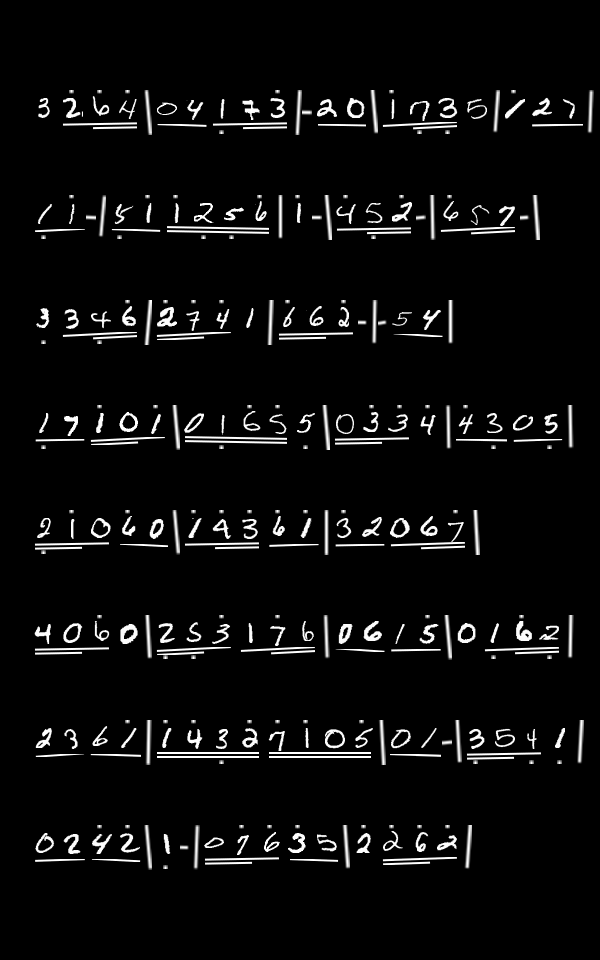 3 2 6 4 | 0 4 1 7 3 | - 2 0 | 1 7 3 5 | 1 2 7 |
1 1 - | 5 1 1 2 5 6 | 1 - | 4 5 2 - | 6 5 7 - |
3 3 4 6 | 2 7 4 1 | 6 6 2 - | - 5 4 |
1 7 1 0 1 | 0 1 6 5 5 | 0 3 3 4 | 4 3 0 5 |
2 1 0 6 0 | 1 4 3 6 1 | 3 2 0 6 7 |
4 0 6 0 | 2 5 3 1 7 6 | 0 6 1 5 | 0 1 6 2 |
2 3 6 1 | 1 4 3 2 7 1 0 5 | 0 1 - | 3 5 4 1 |
0 2 4 2 | 1 - | 0 7 6 3 5 | 2 2 6 2 |